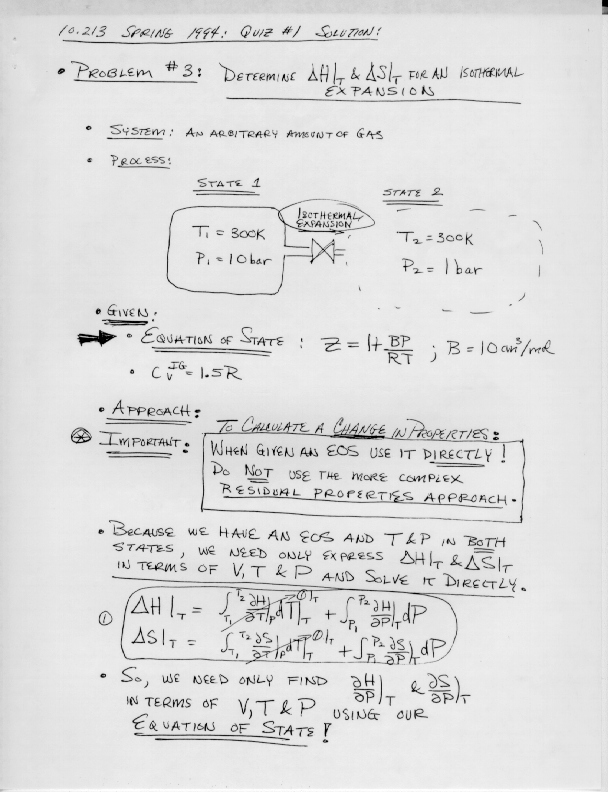 10.213 SPRING 1994: QUIZ #1 SOLUTION:
• PROBLEM #3: DETERMINE ΔH|T & ΔS|T FOR AN ISOTHERMAL
EXPANSION
• SYSTEM: AN ARBITRARY AMOUNT OF GAS
• PROCESS:
STATE 1
STATE 2
ISOTHERMAL
EXPANSION
T1 = 300K
P1 = 10 bar
T2 = 300K
P2 = 1 bar
• GIVEN:
• EQUATION OF STATE : Z = 1+ BP/RT ; B = 10 cm³/mol
• Cv^IG = 1.5R
• APPROACH:
TO CALCULATE A CHANGE IN PROPERTIES:
⊛ IMPORTANT:
WHEN GIVEN AN EOS USE IT DIRECTLY!
DO NOT USE THE MORE COMPLEX
RESIDUAL PROPERTIES APPROACH.
• BECAUSE WE HAVE AN EOS AND T&P IN BOTH
STATES, WE NEED ONLY EXPRESS ΔH|T & ΔS|T
IN TERMS OF V,T & P AND SOLVE IT DIRECTLY.
① ΔH|T = ∫T1^T2 ∂H/∂T|P dT|T → 0|T + ∫P1^P2 ∂H/∂P|T dP
ΔS|T = ∫T1^T2 ∂S/∂T|P dT|T → 0|T + ∫P1^P2 ∂S/∂P|T dP
• SO, WE NEED ONLY FIND ∂H/∂P|T & ∂S/∂P|T
IN TERMS OF V,T & P USING OUR
EQUATION OF STATE!